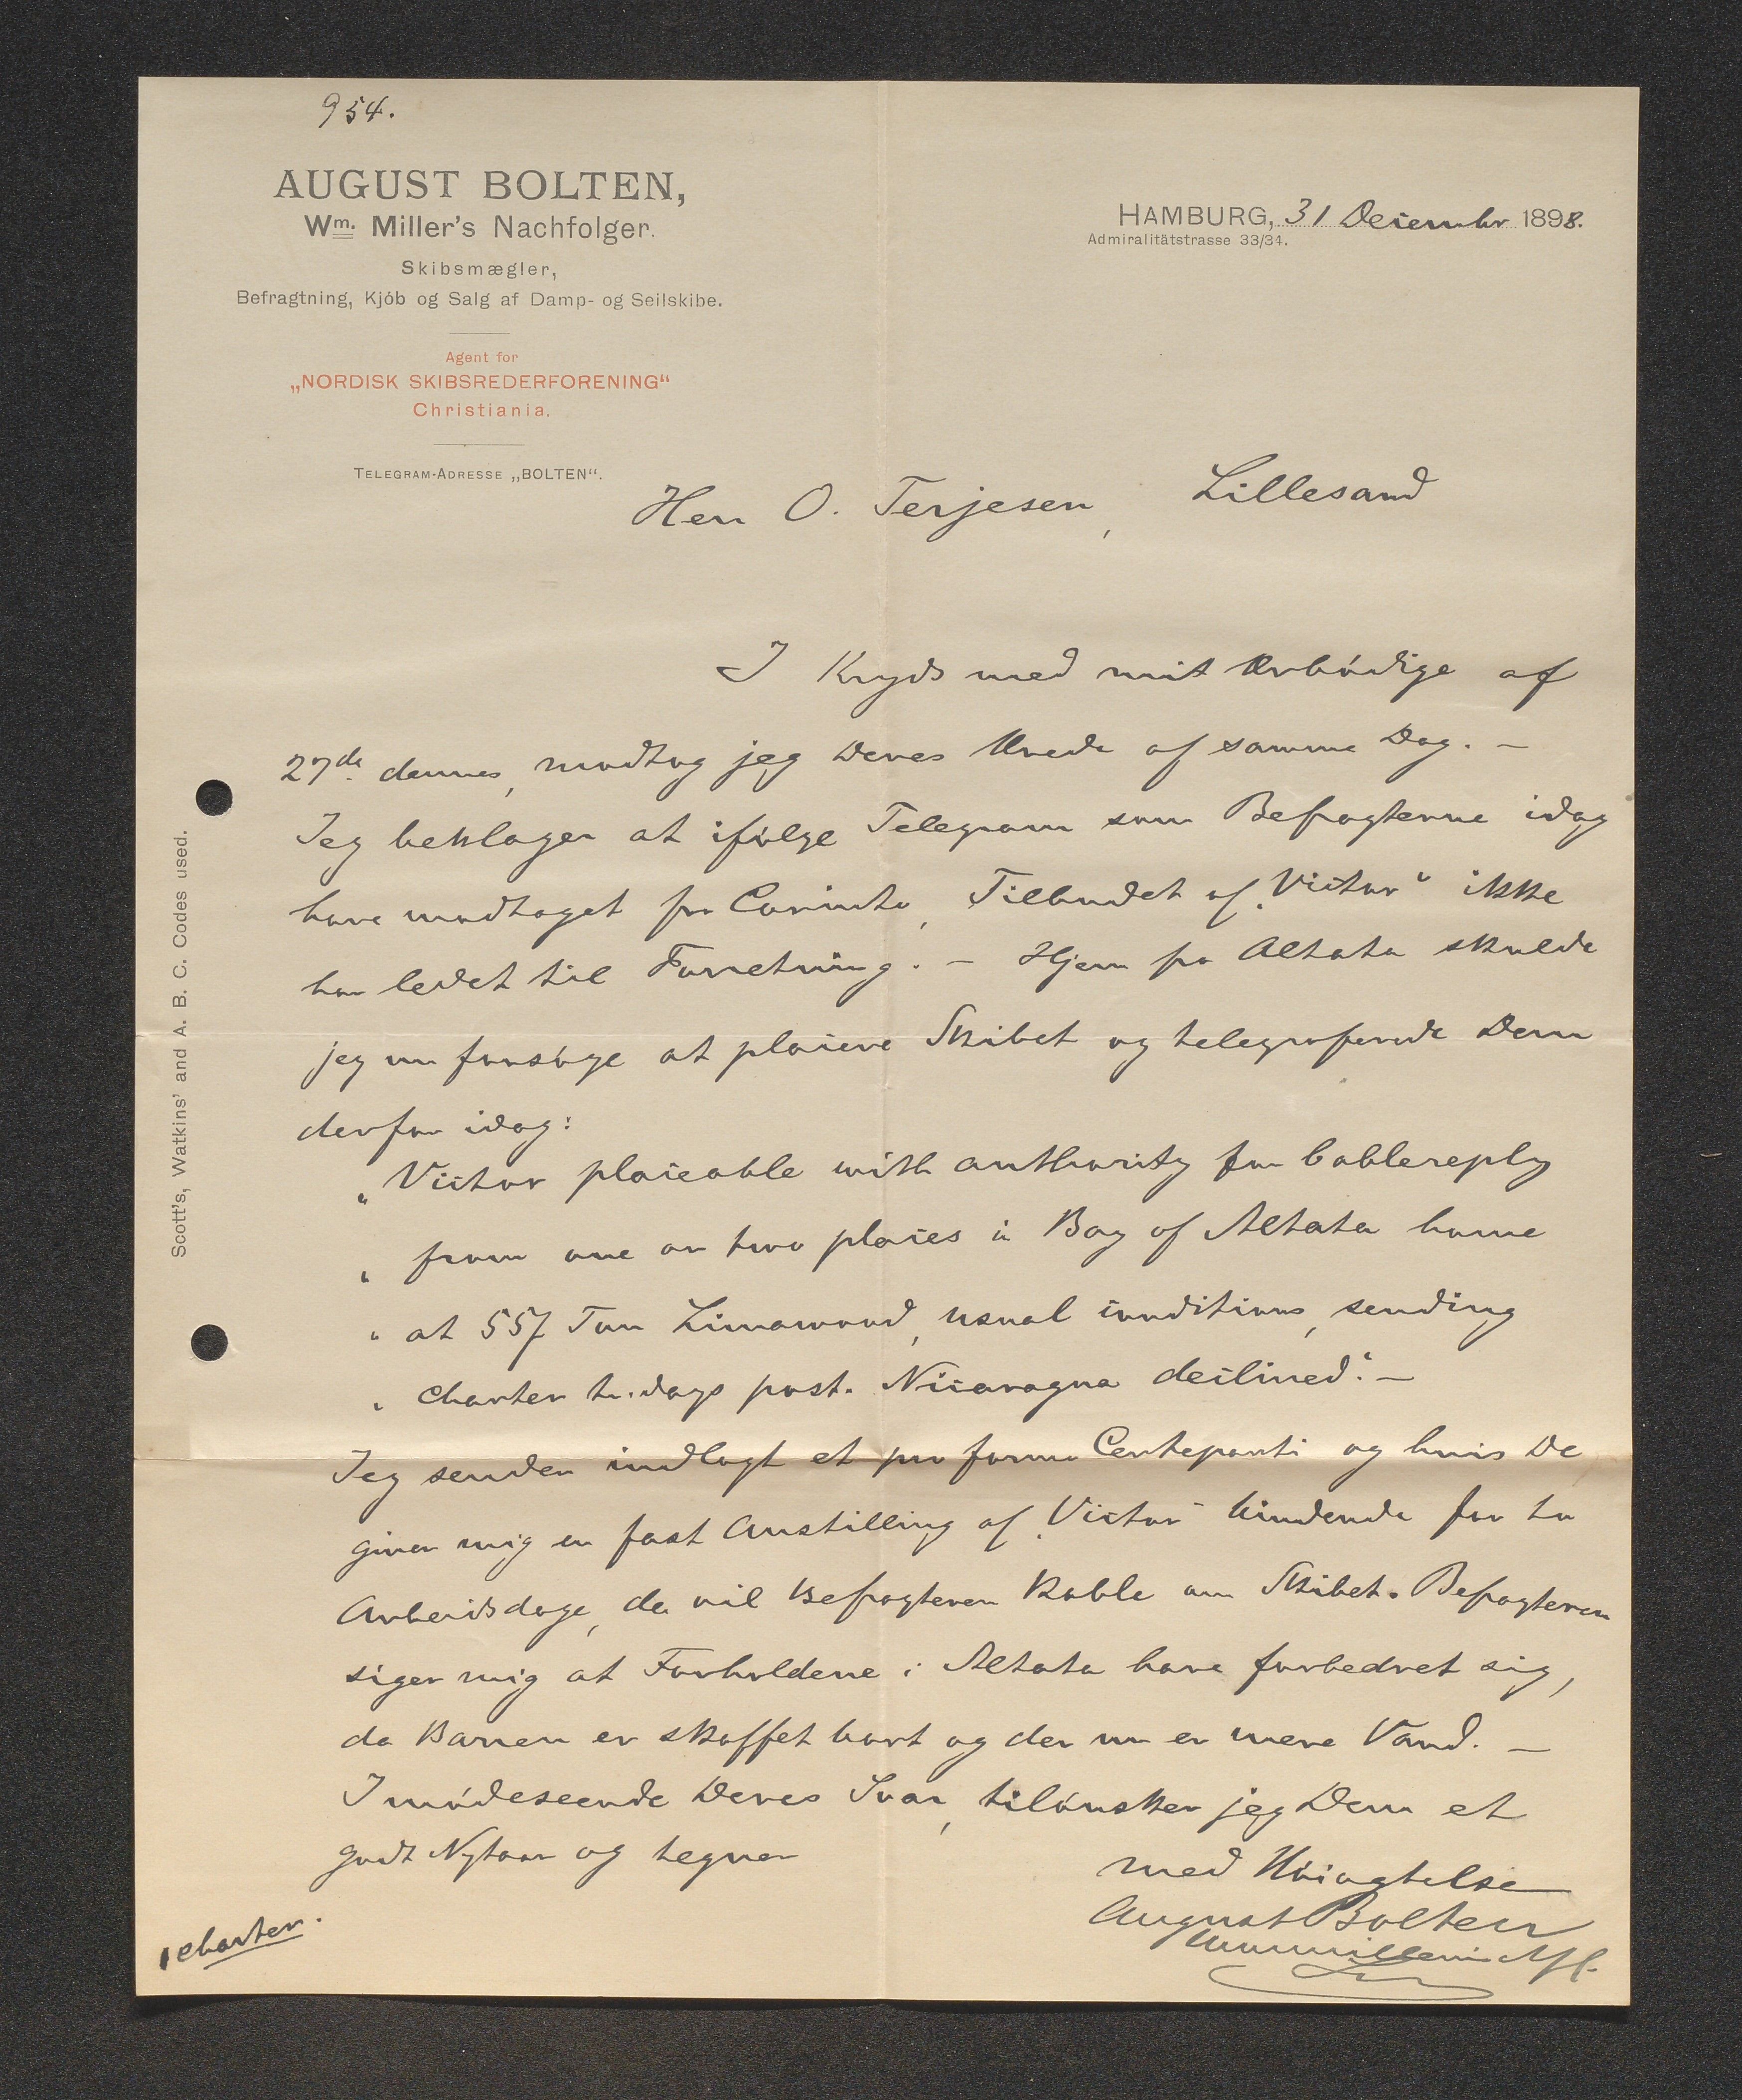 954.
AUGUST BOLTEN,
Wm. Miller's Nachfolger.
Skibsmægler,
Befragtning, Kjób og Salg af Damp- og Seilskibe.
Agent for
„NORDISK SKIBSREDERFORENING“
Christiania.
TELEGRAM-ADRESSE „BOLTEN“.
HAMBURG, 31 December 1898.
Admiralitätstrasse 33/34.
Scott's, Watkins' and A. B. C. Codes used.
Herr O. Terjesen, Lillesand
I Kryds med mit Ærbódige af
27de dennes, modtog jeg Deres Ærede af samme Dag. –
Jeg beklager at ifólge Telegram som Befragterne idag
have modtaget fra Corinto, Tilbudet af „Victor“ ikke
har ledet til Forretning. – Hjem fra Altata skulde
jeg nu forsóge at placere Skibet og telegraferede Dem
derfor idag:
„ Victor placeable with authority for Cablereply
„ from one or two places in Bay of Altata home
„ at 55/ Ton Limawood, usual conditions, sending
„ charter tr. days post. Nicaragua declined“. –
Jeg sender indlagt et pro forma Certeparti og hvis De
giver mig en fast Anstilling af „Victor“ bindende for to
Arbeidsdage, da vil Befragteren kable om Skibet. Befragteren
siger mig at Forholdene i Altata have forbedret sig,
da Barren er skaffet bort og der nu er mere Vand. –
Imódeseende Deres Svar, tilónsker jeg Dem et
godt Nytaar og tegner
med Hóiagtelse
August Bolten
Wm Miller's Nfl.
1 charter.